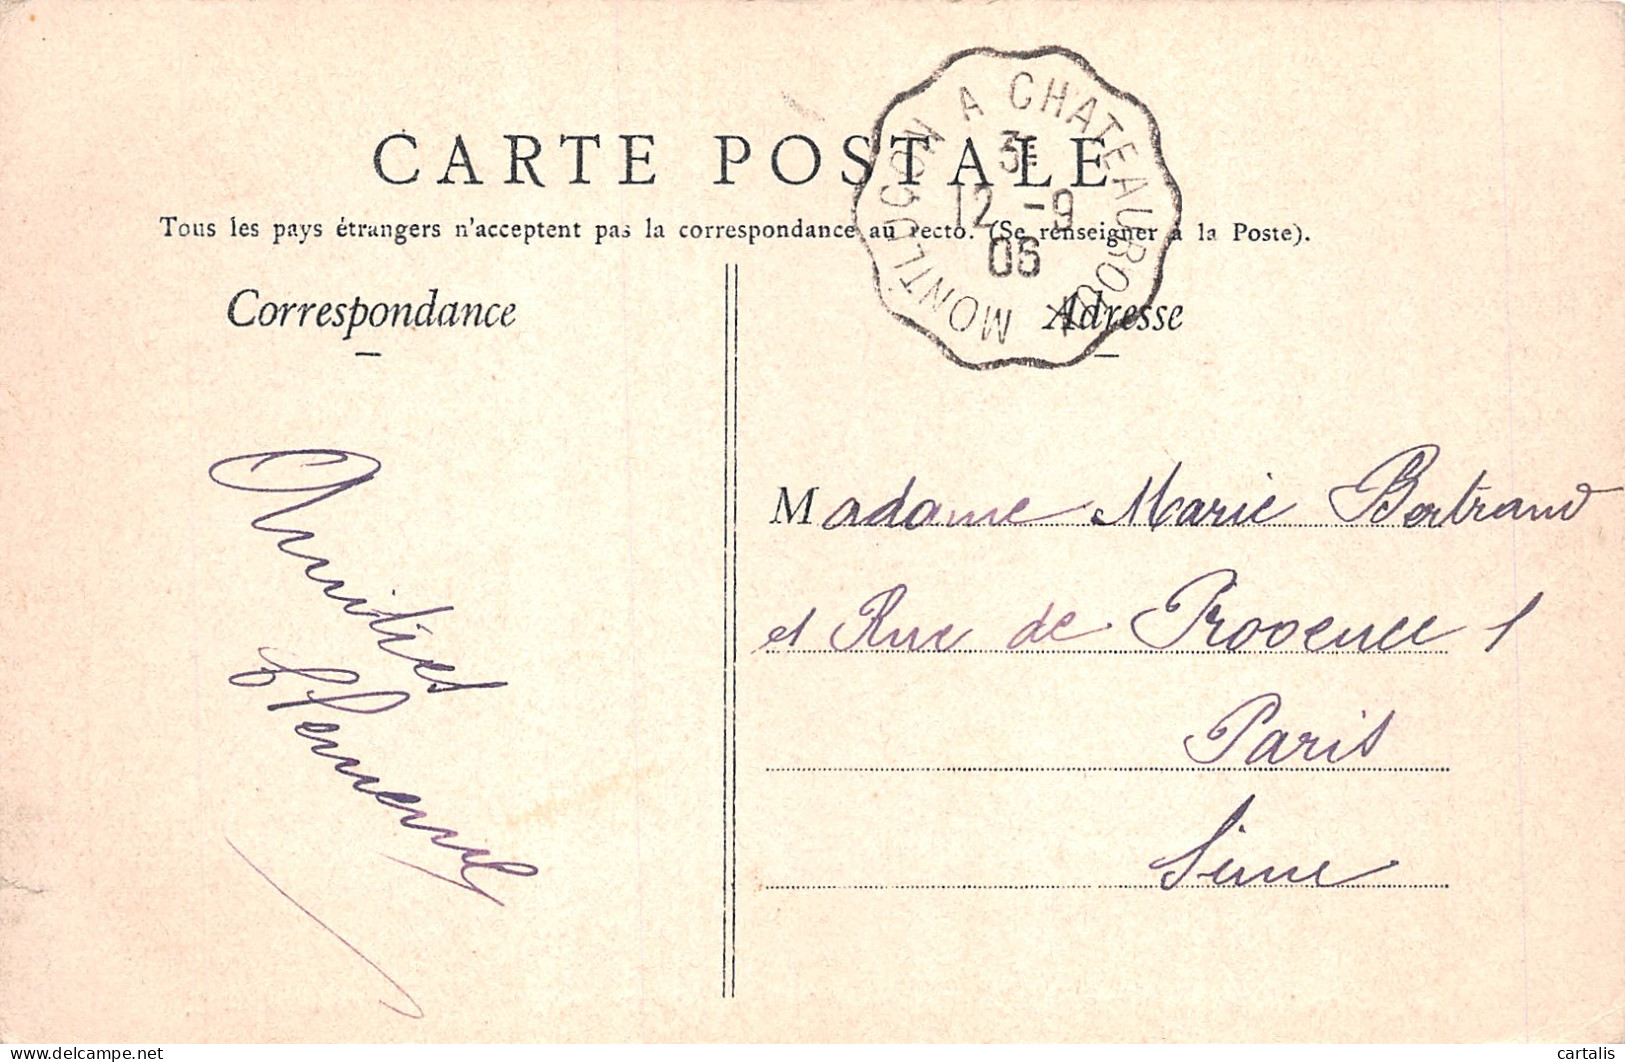 CARTE POSTALE
MONTLUÇON A CHATEAUROUX
3E
12 -9
06
Tous les pays étrangers n'acceptent pas la correspondance au recto. (Se renseigner à la Poste).
Correspondance
Adresse
Amitiés
Madame Marie Bertrand
Rue de Provence 1
Paris
Seine
delcampe.net
cartalis